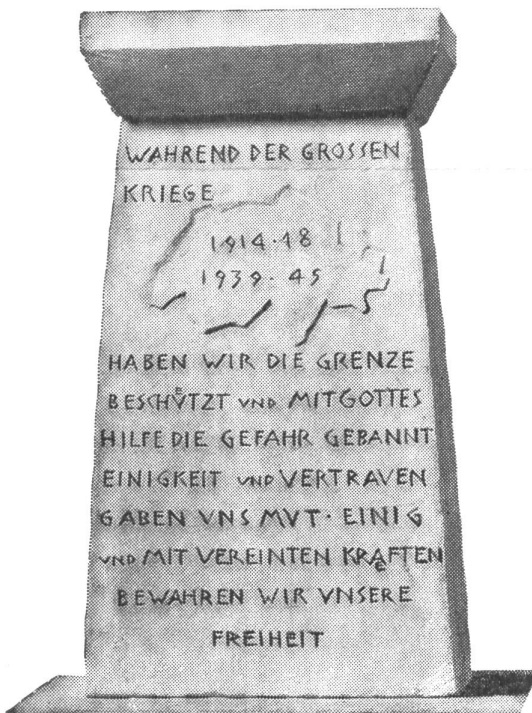 WAHREND DER GROSSEN
KRIEGE
1914·18
1939·45
HABEN WIR DIE GRENZE
BESCHVͤTZT UND MIT GOTTES
HILFE DIE GEFAHR GEBANNT
EINIGKEIT UND VERTRAVEN
GABEN VNS MVT · EINIG
UND MIT VEREINTEN KRAͤFTEN
BEWAHREN WIR VNSERE
FREIHEIT